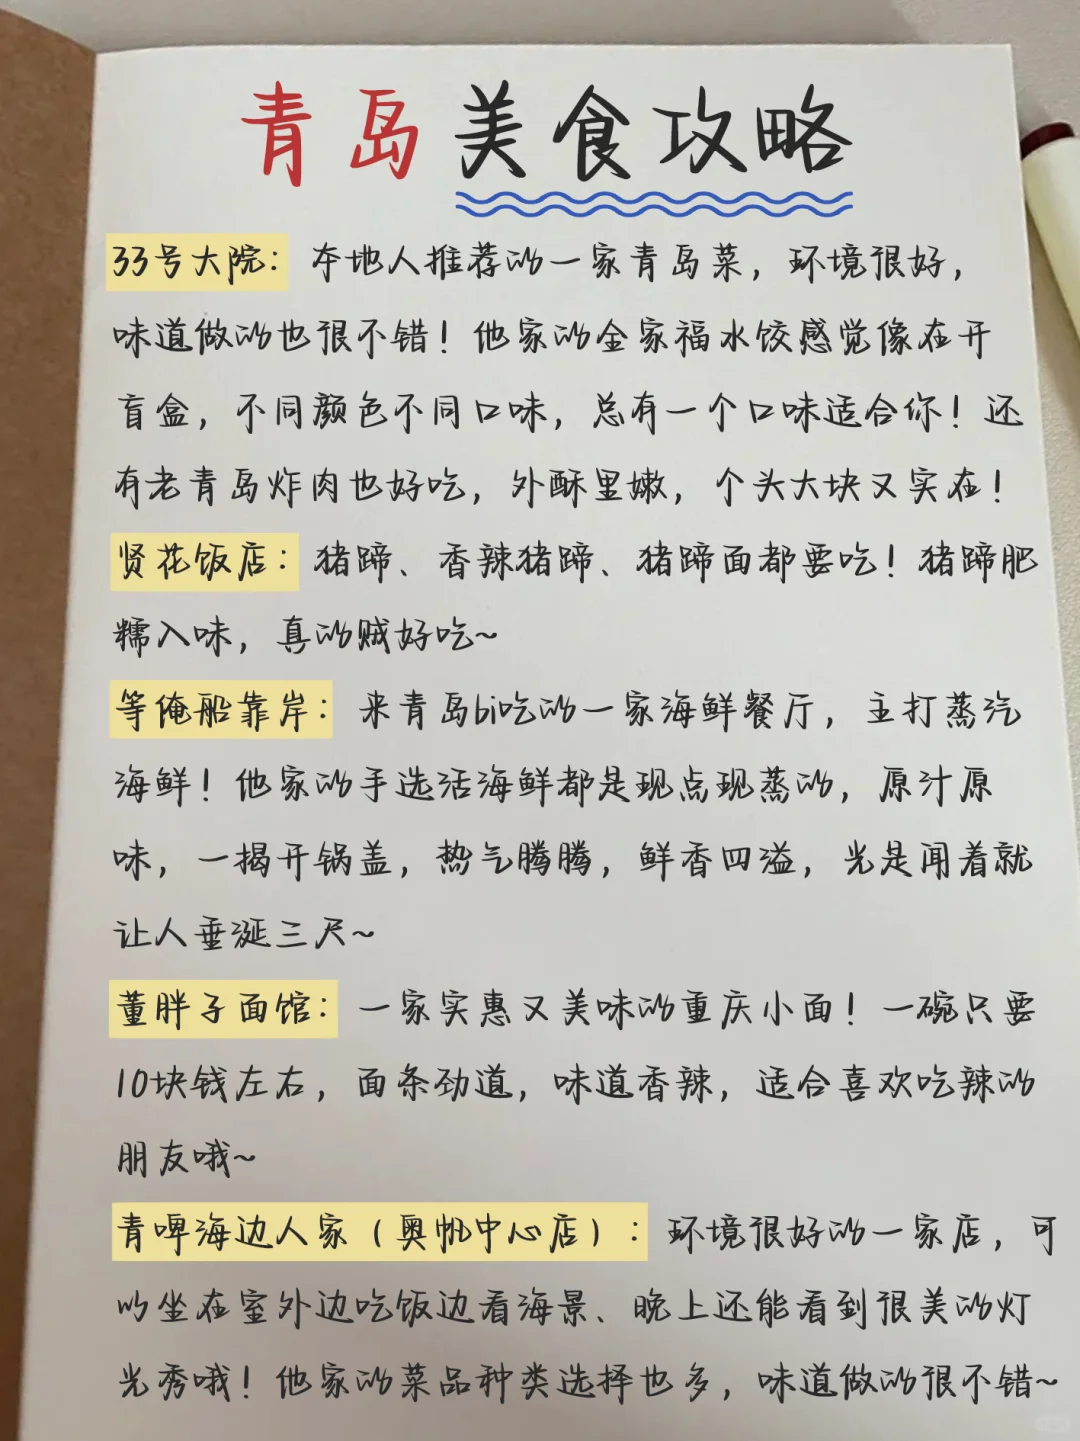 青岛美食攻略
33号大院：本地人推荐的一家青岛菜，环境很好，
味道做的也很不错！他家的全家福水饺感觉像在开
盲盒，不同颜色不同口味，总有一个口味适合你！还
有老青岛炸肉也好吃，外酥里嫩，个头大块又实在！
贤花饭店：猪蹄、香辣猪蹄、猪蹄面都要吃！猪蹄肥
糯入味，真的贼好吃~
等俺船靠岸：来青岛bi吃的一家海鲜餐厅，主打蒸汽
海鲜！他家的手选活海鲜都是现点现蒸的，原汁原
味，一揭开锅盖，热气腾腾，鲜香四溢，光是闻着就
让人垂涎三尺~
董胖子面馆：一家实惠又美味的重庆小面！一碗只要
10块钱左右，面条劲道，味道香辣，适合喜欢吃辣的
朋友哦~
青啤海边人家（奥帆中心店）：环境很好的一家店，可
以坐在室外边吃饭边看海景、晚上还能看到很美的灯
光秀哦！他家的菜品种类选择也多，味道做的很不错~